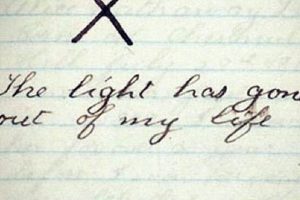 X
The light has gon
out of my life